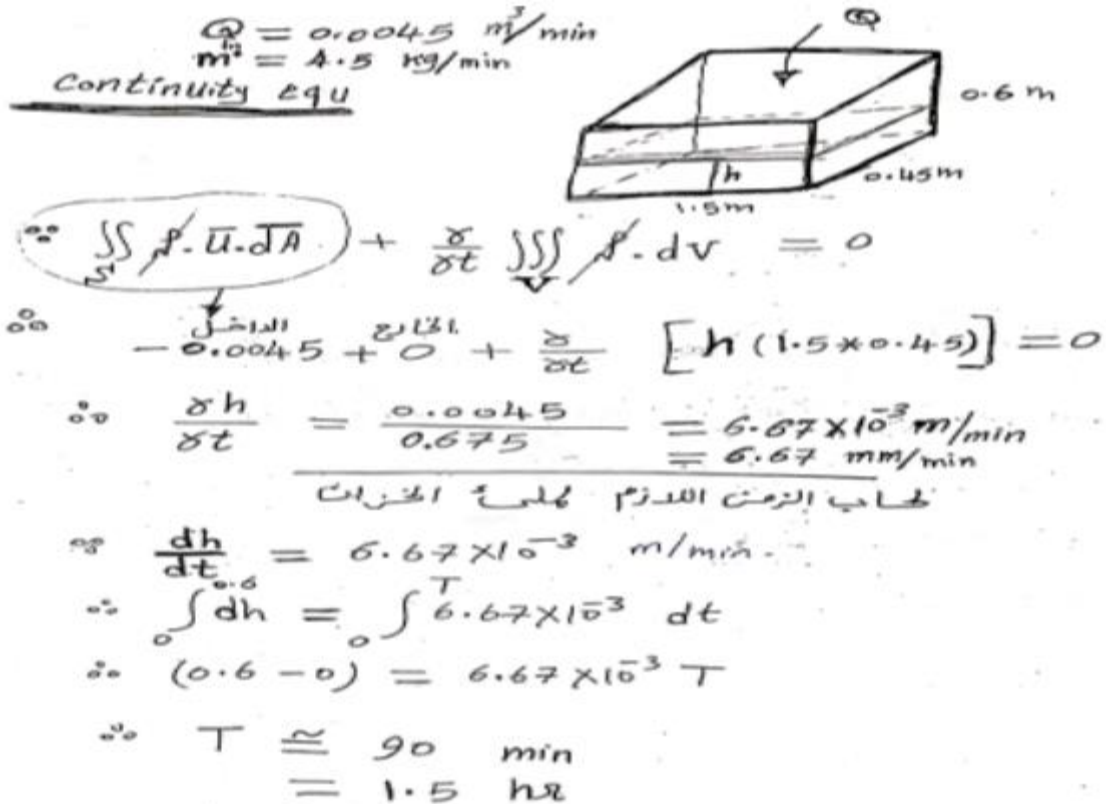 Q = 0.0045 m³/min
ṁ = 4.5 kg/min
Continuity Equ
Q
0.6 m
h
0.45m
1.5m
∴ ∬ ρ.ū.dĀ + ∂/∂t ∭ ρ.dv = 0
الداخل الخارج
∴ -0.0045 + 0 + ∂/∂t [h (1.5*0.45)] = 0
∴ ∂h/∂t = 0.0045/0.675 = 6.67×10⁻³ m/min
= 6.67 mm/min
لحساب الزمن اللازم لملئ الخزان
∴ dh/dt = 6.67×10⁻³ m/min.
∴ ₀∫^0.6 dh = ₀∫^T 6.67×10⁻³ dt
∴ (0.6 - 0) = 6.67×10⁻³ T
∴ T ≅ 90 min
= 1.5 hr